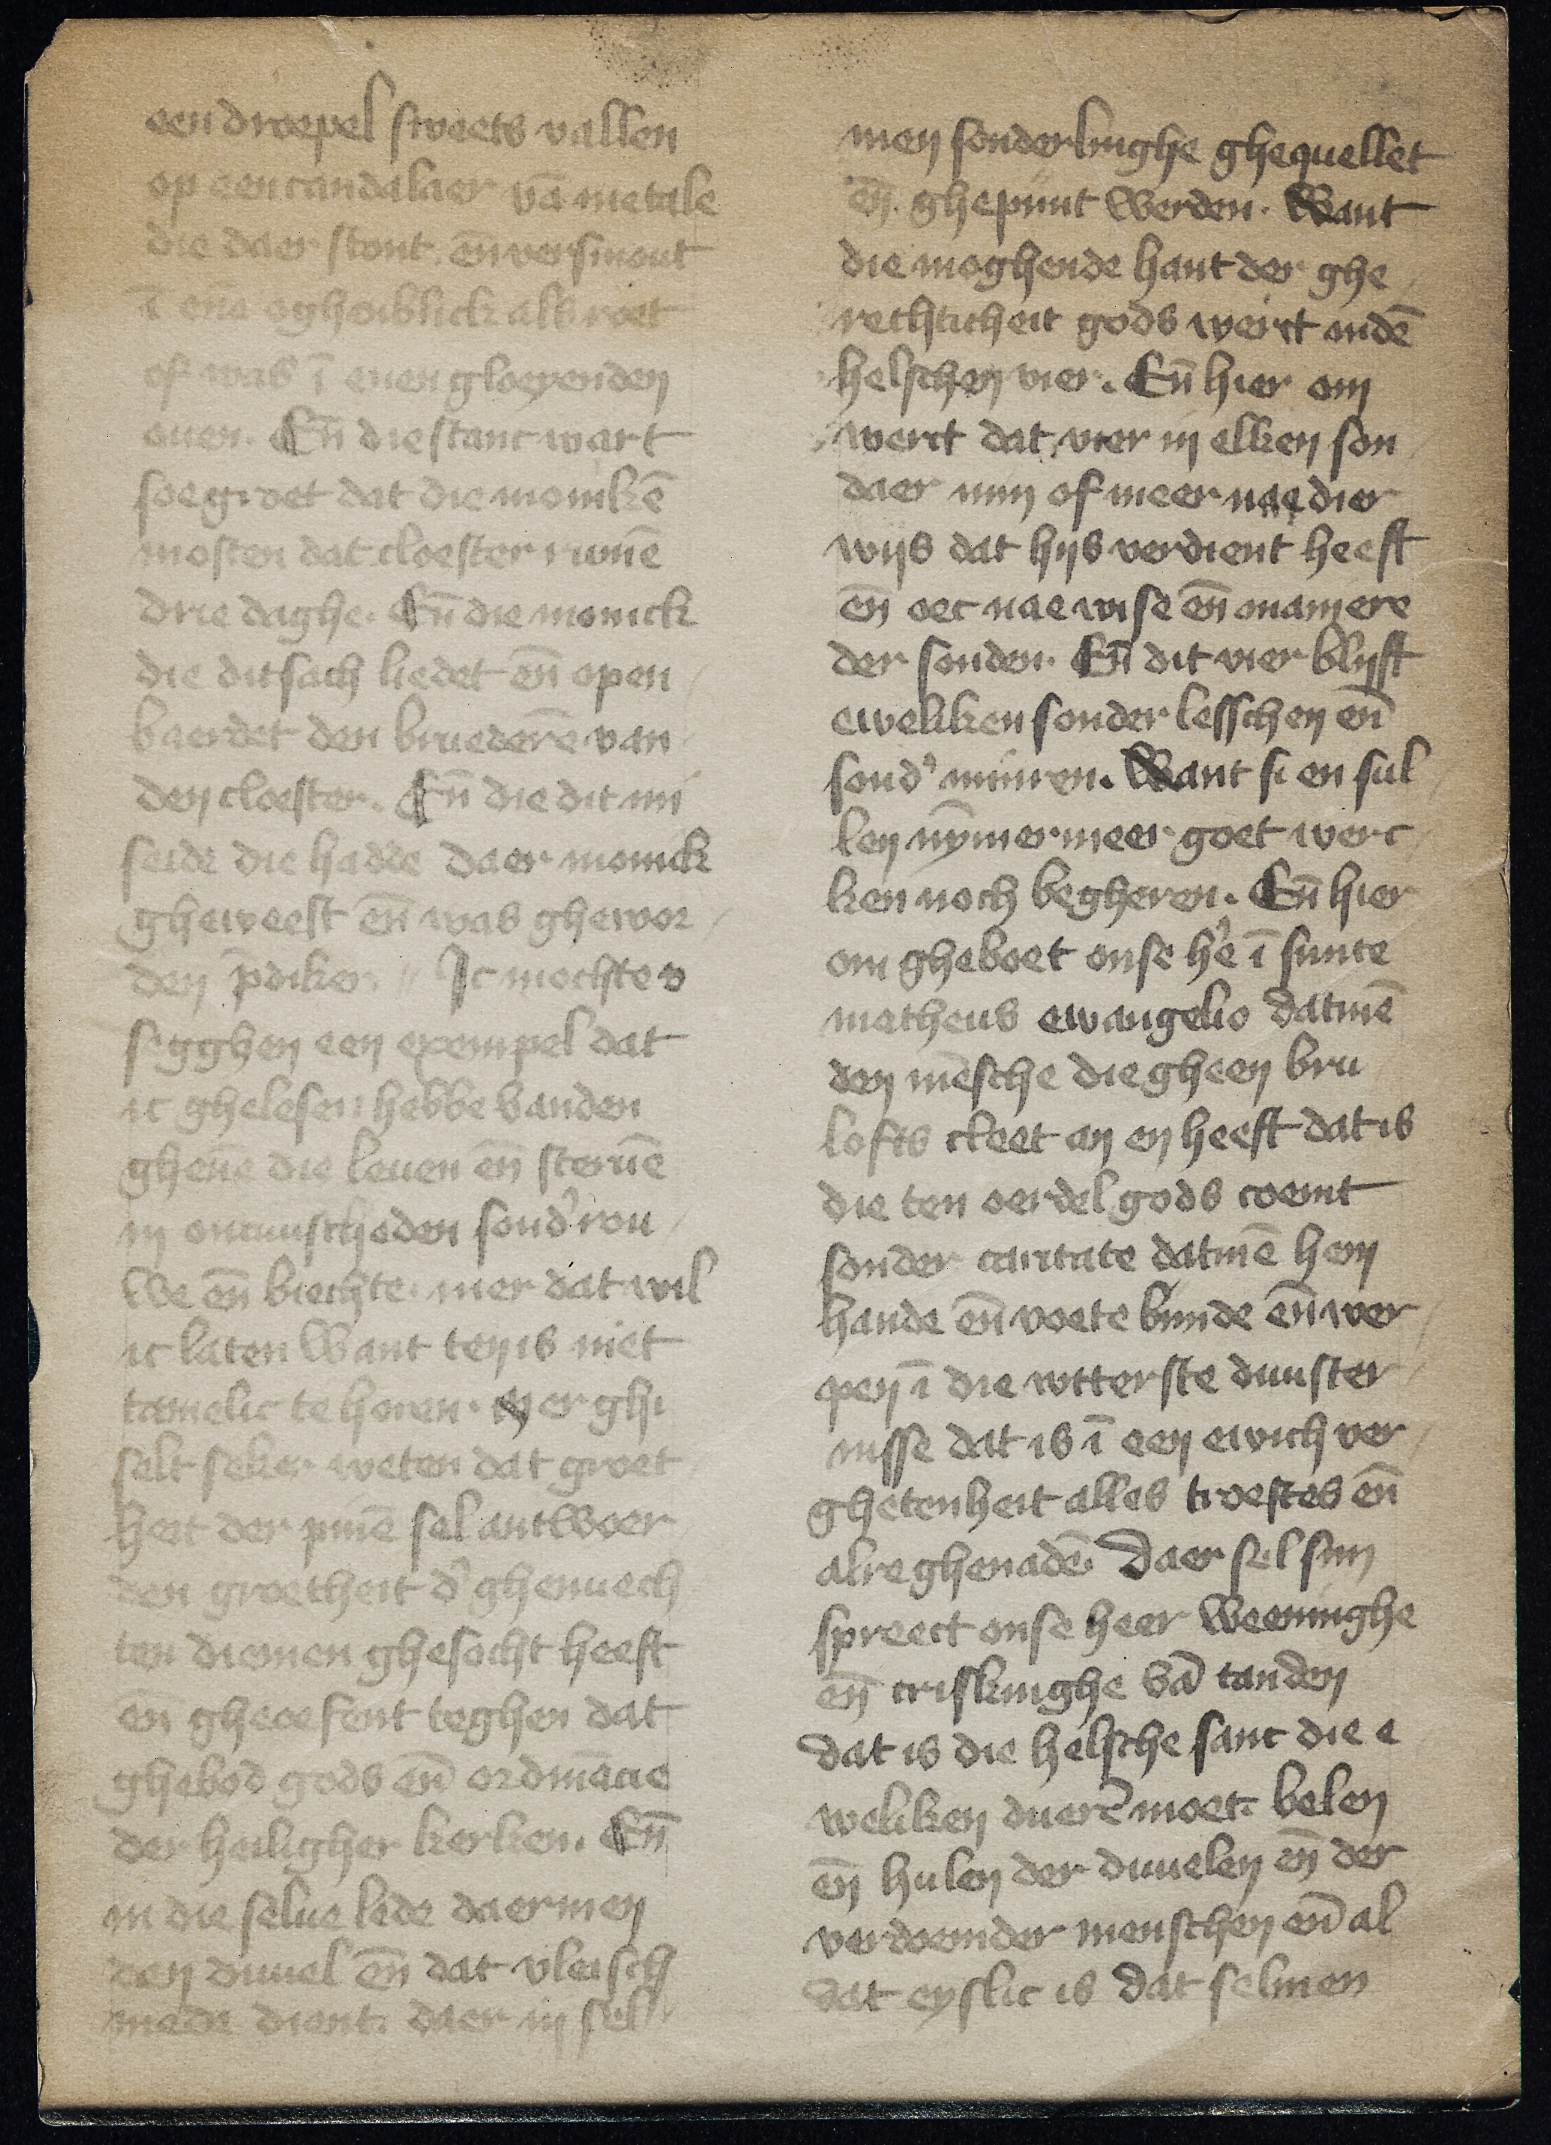 een droepel sweets vallen
op een candalaer vā metale
die daer stont. en̄ versmout
ī ene oghenblick als roet
of was ī enen gloeyenden
ouen. En̄ die stanc wart
soe groet dat die monikē
mosten dat cloester rumē
drie daghe. En̄ die monick
die dit sach liedet en̄ open
baerdet den bruederē van
den cloester. En̄ die dit mi
seide die hadde daer monick
gheweest en̄ was ghewor
den p̄diker. Ic mochte v
segghen een exempel dat
ic ghelesen hebbe vanden
ghenē die leuen en̄ steruē
in oncuuscheden sond' rou
we en̄ biechte. mer dat wil
ic laten want ten is niet
tamelic te horen. Mer ghi
selt seker weten dat groet
heit der pinē sel antwoer
den groetheit d' ghenuech
ten diemen ghesocht heeft
en̄ gheoefent teghen dat
ghebod gods en̄ ordinācie
der heiligher kerken. En̄
in die selue lede daermen
den duuel en̄ dat vleisch
mede dient. daer in sel
men sonderlinghe ghequellet
en̄ ghepiint werden. Want
die moghende hant der ghe
rechticheit gods werct indē
helschen vier. En̄ hier om
werct dat vier in elken son
daer min of meer nae dier
wijs dat hijs verdient heeft
en̄ oec nae wise en̄ maniere
der sonden. En̄ dit vier blijft
eweliken sonder lesschen en̄
sond' minren. Want si en sul
len nȳmermeer goet werc
ken noch begheren. En̄ hier
om gheboet onse h'e ī sunte
matheus ewangelio datmē
den mēsche die gheen bru
lofts cleet an en heeft dat is
die ten oerdel gods coemt
sonder caritate datmē hem
hande en̄ voete binde en̄ wer
pen ī die wtterste duuster
nisse dat is ī een ewich ver
ghetenheit alles troestes en̄
alre ghenadē. Daer sel sijn
spreect onse heer weeninghe
en̄ criskinghe vā tanden
dat is die helsche sanc die e
weliken duerē moet. belen
en̄ hulen der duuelen en̄ der
verdoemder menschen en̄ al
dat eyslic is dat selmen